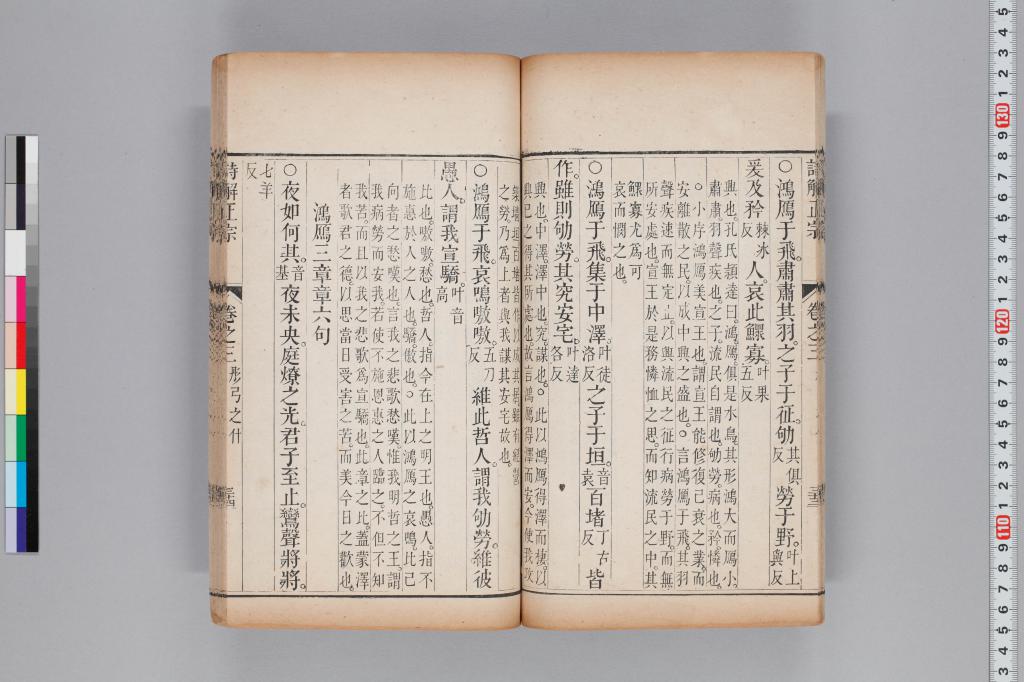 詩解正宗
卷之三
○鴻鴈于飛。肅肅其羽。之子于征。劬其俱反勞于野。叶上與反
爰及矜棘冰反人。哀此鰥寡。叶果五反
興也。孔氏穎達曰。鴻鴈俱是水鳥。其形鴻大而鴈小。
肅肅羽聲疾也。之子。流民自謂也。劬勞。病也。矜。憐也。
○小序鴻鴈美宣王也。謂宣王能修復已衰之業。而
安離散之民。以成中興之盛也。○言鴻鴈于飛。其羽
聲疾速而無定。以興流民之征行病勞于野。而無
所安處也。宣王於是務憐恤之思。而知流民之中。其
鰥寡尤爲可
哀而憫之也。
○鴻鴈于飛。集于中澤。叶徒洛反之子于垣。音袁百堵丁古反皆
作。雖則劬勞。其究安宅。叶達各反
興也。中澤。澤中也。究。謀也。○此以鴻鴈得澤而棲。以
興己之得其所處也。故言鴻鴈得澤而安。今使我
之勞。乃爲上者與我謀其安宅故也。
○鴻鴈于飛。哀鳴嗷嗷。五刀反維此哲人。謂我劬勞。維彼
愚人。謂我宣驕。叶音高
比也。嗷嗷。愁也。哲人。指今在上之明王也。愚人。指不
施惠於人之人也。驕。傲也。○此以鴻鴈之哀鳴。比己
向者之愁嘆也。言我之悲歌愁嘆。惟我明哲之王。謂
我病勞而安我。若使不施恩惠之人臨之。不但不知
我苦。而且以我之悲歌爲宣驕也。此章之比。蓋蒙澤
者歌君之德。以思當日受害之苦。而美今日之歡也。
鴻鴈三章章六句
○夜如何其。音基夜未央。庭燎之光。君子至止。鸞聲將將。
七羊反
詩解正宗
卷之三 彤弓之什